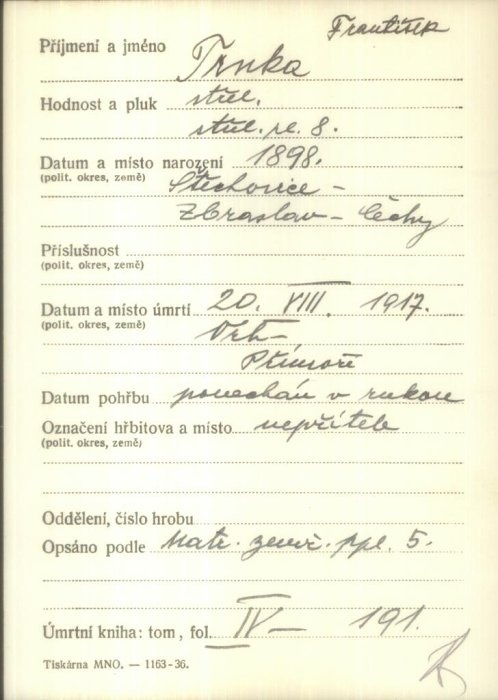 František
Příjmení a jméno Trnka
Hodnost a pluk střel.
střel. pl. 8.
Datum a místo narození 1898.
(polit. okres, země) Štěchovice –
Zbraslav – Čechy
Příslušnost
(polit. okres, země)
Datum a místo úmrtí 20. VIII. 1917.
(polit. okres, země) Vrh –
Přímoří
Datum pohřbu ponechán v rukou
Označení hřbitova a místo nepřítele
(polit. okres, země)
Oddělení, číslo hrobu
Opsáno podle Matr. zemř. ppl. 5.
Úmrtní kniha: tom, fol. IV – 191.
Tiskárna MNO. — 1163-36.